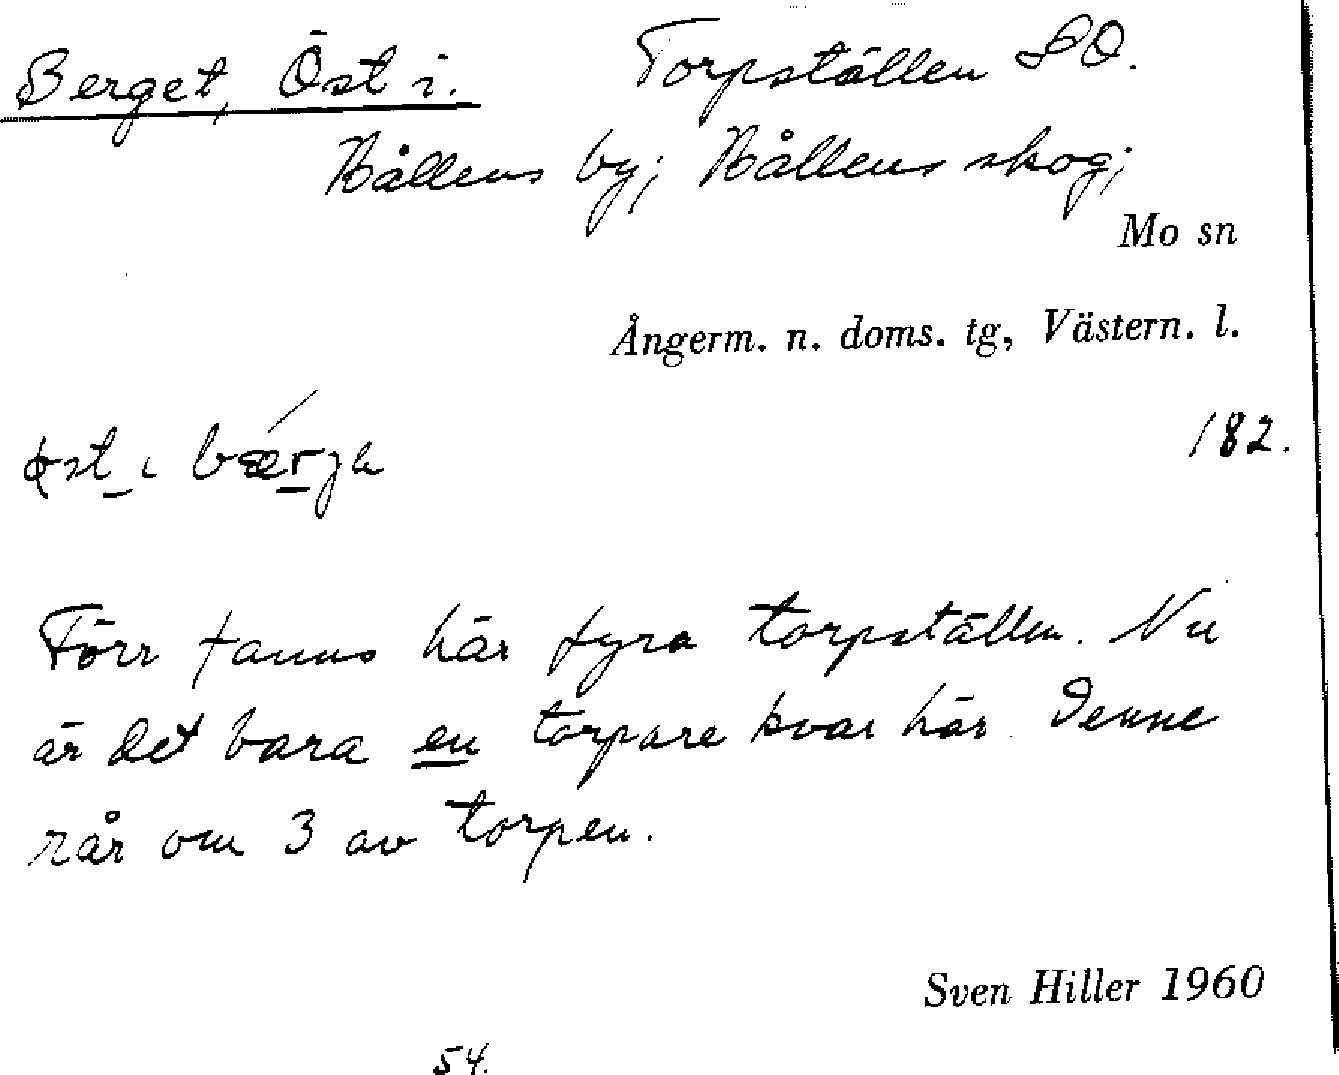 Berget, Öst i. Torpställen SO.
Kållens by; Kållens skog;
Mo sn
Ångerm. n. doms. tg, Västern. l.
182.
öst i bærja
Förr fanns här fyra torpställen. Nu
är det bara en torpare kvar här. Denne
rår om 3 av torpen.
Sven Hiller 1960
54.